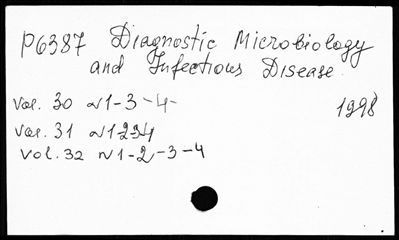 P6387 Diagnostic Microbiology
and Infectious Disease.
Vol. 30 N1-3-4- 1998
Vol. 31 N1234
Vol. 32 N1-2-3-4